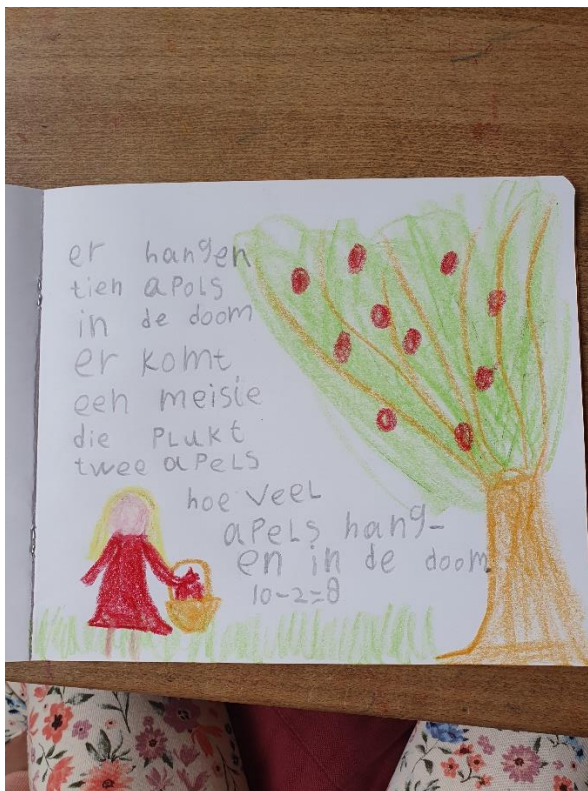 er hangen
tien apols
in de doom
er komt
een meisie
die plukt
twee apels
hoe veel
apels hang-
en in de doom
10-2=8